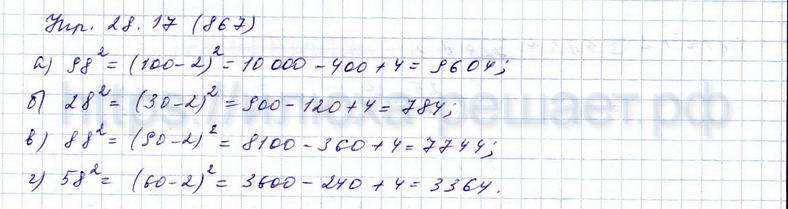 Упр. 28.17 (867)
а) 98² = (100-2)² = 10 000 - 400 + 4 = 9604;
б) 28² = (30-2)² = 900 - 120 + 4 = 784;
в) 88² = (90-2)² = 8100 - 360 + 4 = 7744;
г) 58² = (60-2)² = 3600 - 240 + 4 = 3364.